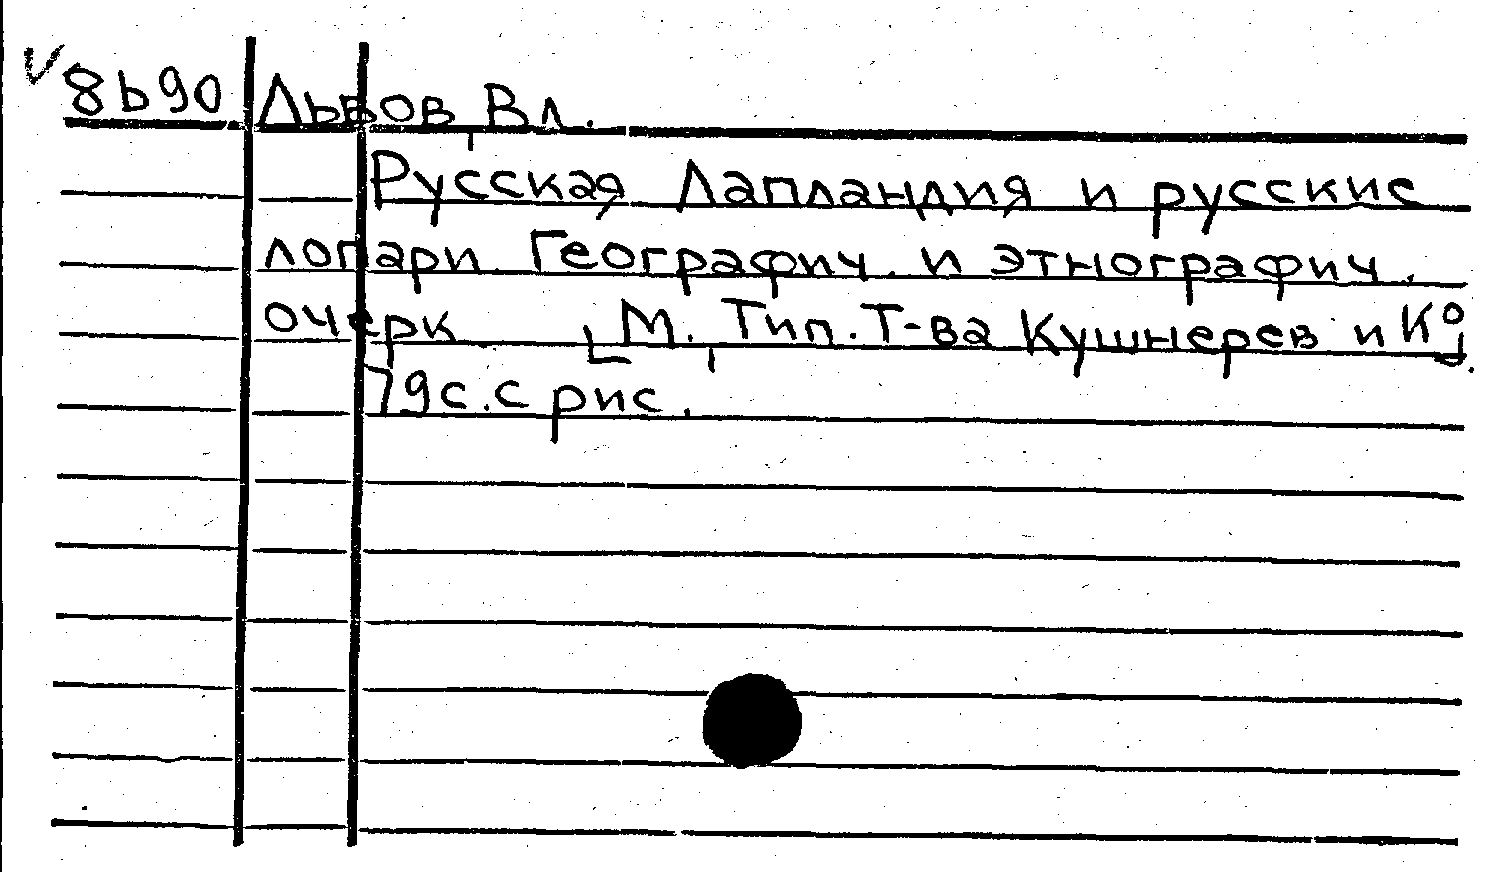 8b90 Львов, Вл.
Русская Лапландия и русские
лопари. Географич. и этнографич.
очерк. [М., Тип. Т-ва Кушнерев и Ко].
79 с. с рис.